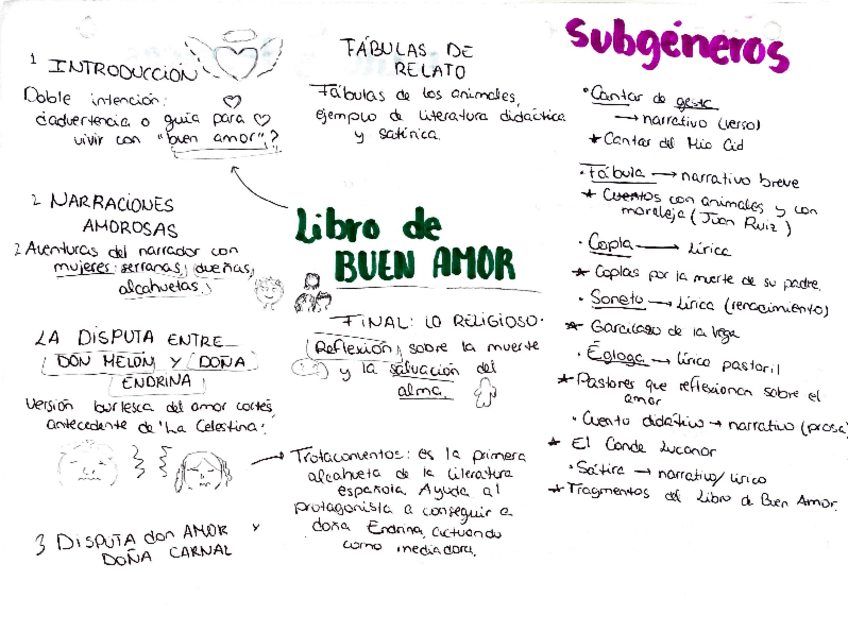 1 INTRODUCCIÓN
Doble intención:
¿advertencia o guía para
vivir con "buen amor"?
2 NARRACIONES
AMOROSAS
2 Aventuras del narrador con
mujeres: serranas, dueñas,
alcahuetas.
LA DISPUTA ENTRE
DON MELÓN Y DOÑA
ENDRINA
Versión burlesca del amor cortés,
antecedente de 'La Celestina'.
3 DISPUTA don AMOR Y
DOÑA CARNAL
FÁBULAS DE
RELATO
Fábulas de los animales,
ejemplo de literatura didáctica
y satírica.
Libro de
BUEN AMOR
FINAL: LO RELIGIOSO.
Reflexión sobre la muerte
y la salvación del
alma.
Trotaconventos: es la primera
alcahueta de la literatura
española. Ayuda al
protagonista a conseguir a
doña Endrina, actuando
como mediadora.
Subgéneros
· Cantar de gesta
→ narrativo (verso)
★ Cantar del Mio Cid
· Fábula → narrativo breve
★ Cuentos con animales y con
moraleja (Juan Ruiz)
· Copla → Lírica
★ Coplas por la muerte de su padre.
· Soneto → Lírica (renacimiento)
★ Garcilaso de la Vega
· Égloga → lírico pastoril
★ Pastores que reflexionan sobre el
amor
· Cuento didáctivo → narrativo (prosa)
★ El Conde Lucanor
· Sátira → narrativo/lírico
★ Fragmentos del Libro de Buen Amor.